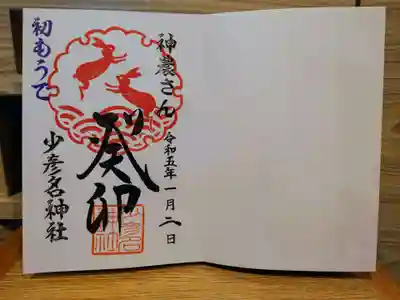 神農さん
令和五年一月二日
癸卯
初もうで
少彦名神社
少彦名神社